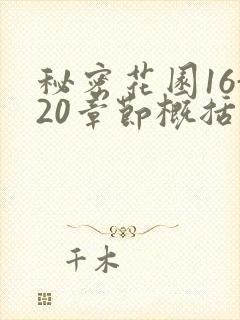 秘密花园16-
20章节概括
千木